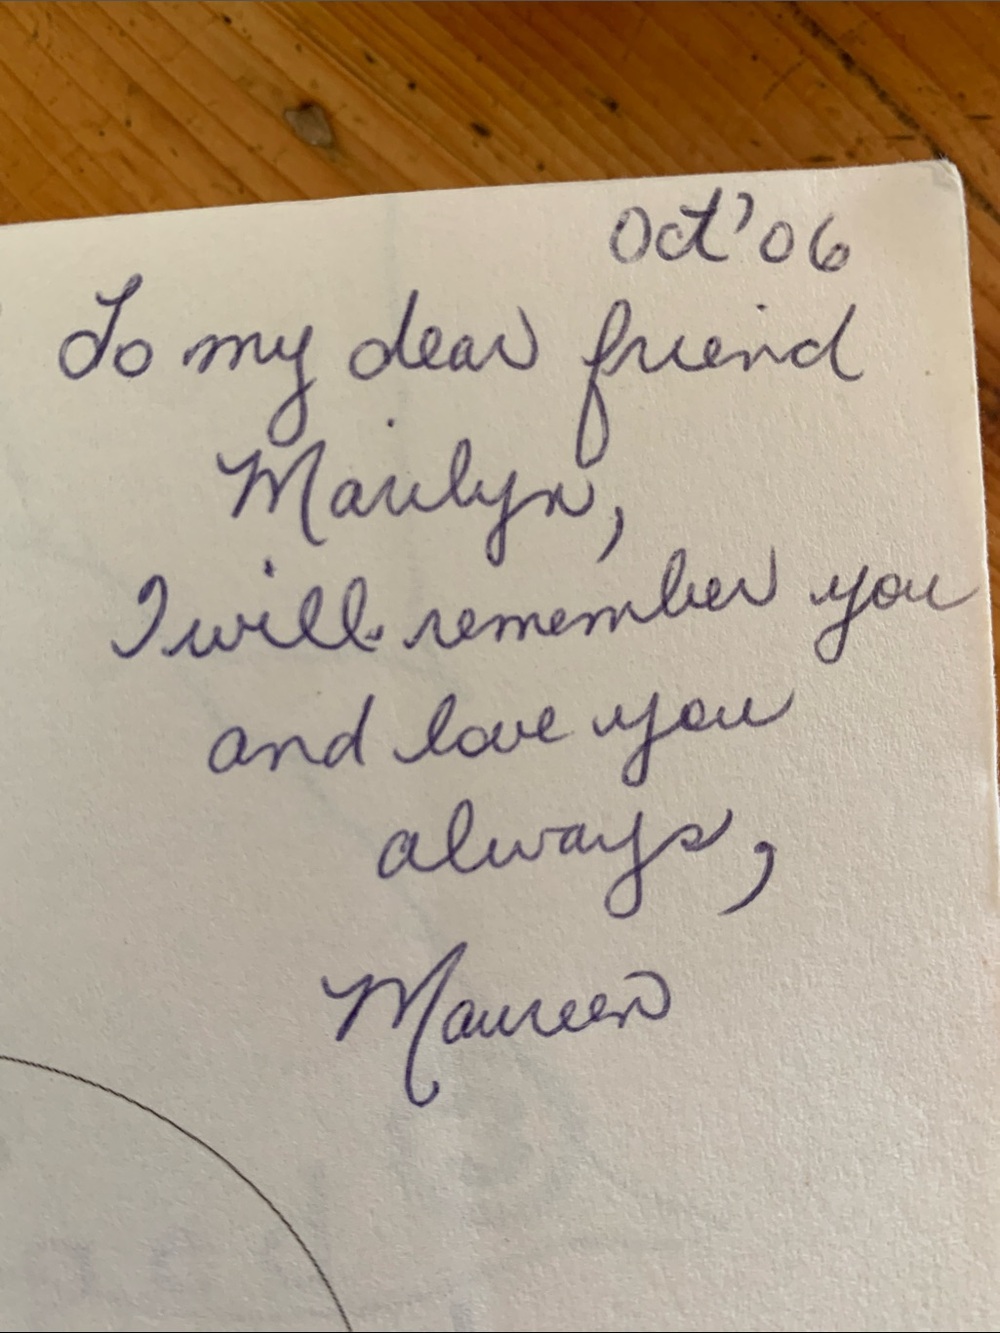 Oct '06
To my dear friend
Marilyn,
I will remember you
and love you
always,
Maureen